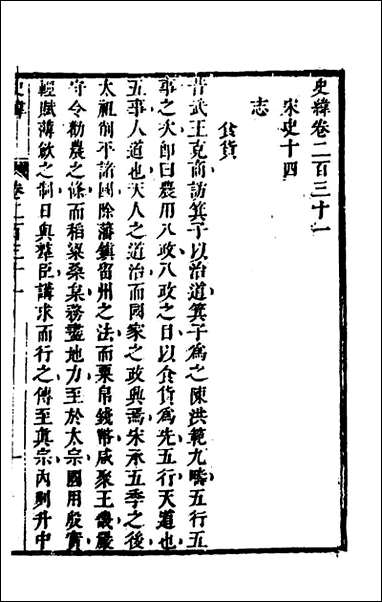 史緯卷二百三十一
宋史十四
志
食貨
昔武王克商訪箕子以治道箕子爲之陳洪範九疇五行五
事之次卽曰農用八政八政之目以食貨爲先五行天道也
五事人道也天人之道治而國家之政興焉宋承五季之後
太祖削平諸國除藩鎮留州之法而粟帛錢幣咸聚王畿嚴
守令勸農之條而稻粱桑枲務盡地力至於太宗國用殷實
輕賦薄歛之制日與羣臣講求而行之傳至眞宗內則升中
史緯
卷二百三十一
一